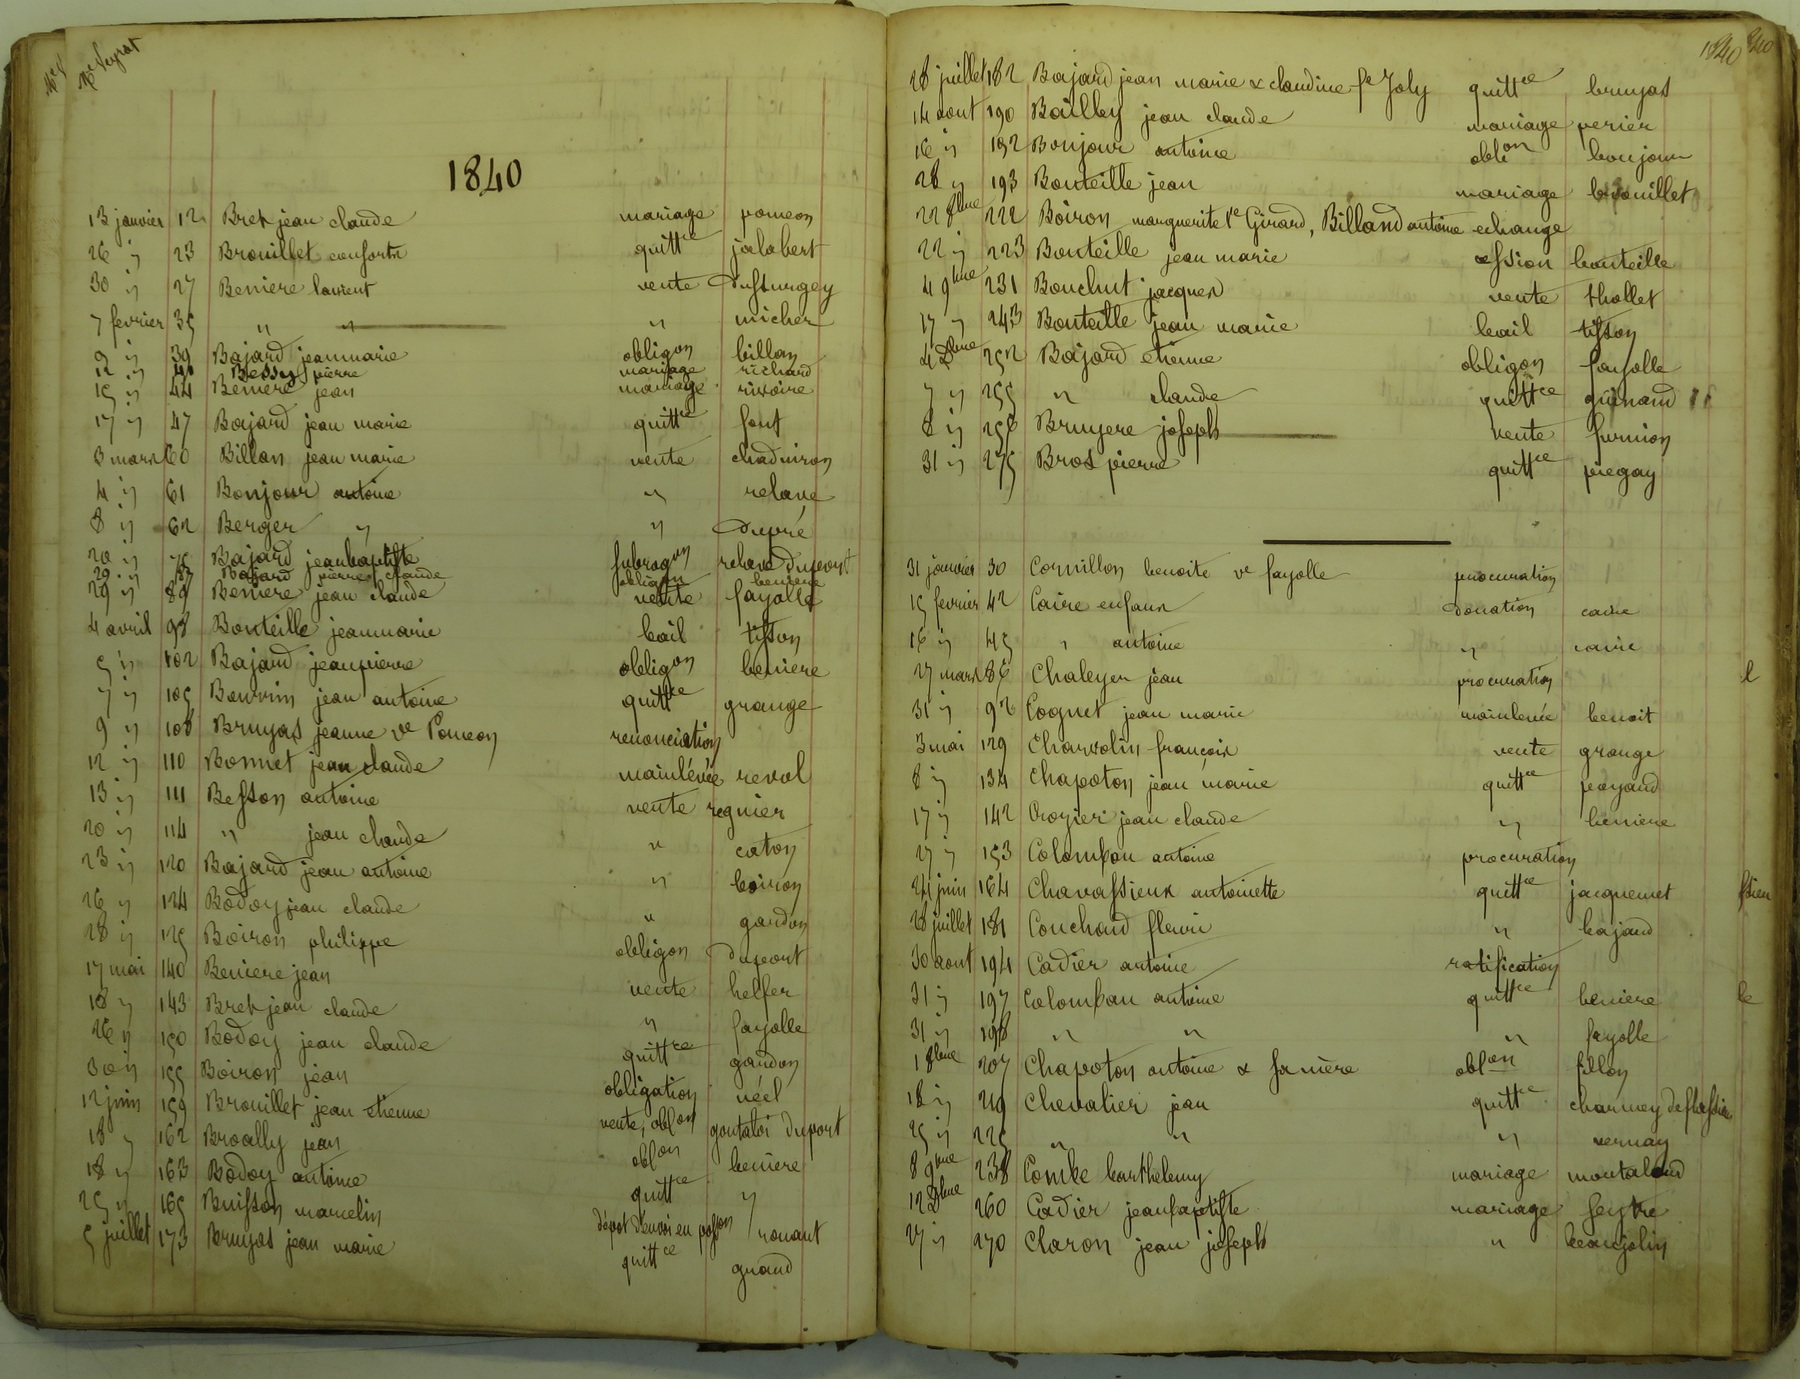 Me Peyrat
1840
13 janvier 12 Bret jean claude mariage pomeon
26 " 23 Brouillet enfants quittce jalabert
30 " 27 Beniere laurent vente Dussurgey
7 fevrier 35 " " " micher
9 " 39 Bajard jeanmarie obligon billon
12 " 40 Bessy pierre mariage richard
15 " 44 Beniere jean mariage rivoire
17 " 47 Bajard jean marie quittce font
3 mars 60 Billon jean marie vente chaduiron
4 " 61 Bonjour antoine " relave
8 " 62 Berger " " Dupré
20 " 75 Bajard jeanbaptiste subrogon relave Duport
29 " 87 Bajard pierre claude obligon beniere
29 " 89 Beniere jean claude vente fayolle
4 avril 98 Bonteille jeanmarie bail tisson
5 " 102 Bajard jeanpierre obligon beniere
7 " 105 Bouvrin jean antoine quittce grange
9 " 108 Bruyas jeanne ve Pomeon renonciation
12 " 110 Bonnet jean claude mainlévée revol
13 " 111 Besson antoine vente regnier
20 " 114 " jean claude " caton
23 " 120 Bajard jean antoine " boiron
26 " 124 Bodoy jean claude " gardon
28 " 125 Boiron philippe obligon Duport
17 mai 140 Beniere jean vente helfer
18 " 143 Bret jean claude " fayolle
26 " 150 Bodoy jean claude quittce gardon
30 " 155 Boiron jean obligation néel
12 juin 159 Brouillet jean etienne vente, oblon goutaloi Duport
18 " 162 Broally jean oblon beniere
18 " 163 Bodoy antoine quittce "
25 " 165 Buisson marcelin dépot d'envoi en posson ronant
5 juillet 173 Bruyas jean marie quittce guaud
1840
28 juillet 182 Bajard jean marie & claudine fe Joly quittce bruyas
14 aout 190 Bailley jean claude mariage perier
16 " 192 Bonjour antoine oblion bonjour
28 " 193 Bonteille jean mariage brouillet
22 8bre 222 Boiron marguerite ve Girard, Billand antoine echange
22 " 223 Bonteille jean marie cession bonteille
4 9bre 231 Bouchut jacques vente thollet
17 " 243 Bonteille jean marie bail tisson
4 Dbre 252 Bajard etienne obligon fayolle
7 " 255 " claude quittce guinand
8 " 258 Bruyere joseph vente furnion
31 " 275 Bros pierre quittce piegay
31 janvier 30 Cornillon benoite ve fayolle procuration
15 fevrier 42 Caire enfans donation caire
16 " 45 " antoine " caire
27 mars 86 Chaleyer jean procuration
31 " 92 Cognet jean marie mainlevée benoit
3 mai 129 Charvolin françois vente grange
8 " 134 Chapoton jean marie quittce payaud
17 " 142 Crozier jean claude " beniere
27 " 153 Colomban antoine procuration
24 juin 164 Chavassieux antoinette quittce jacquemet
28 juillet 181 Couchoud fleuri " bajard
30 aout 194 Cadier antoine ratification
31 " 197 Colomban antoine quittce beniere
31 " 198 " " " fayolle
1 8bre 207 Chapoton antoine & saniere oblon fillon
18 " 219 Chevalier jean quittce
25 " 225 " " " vernay
8 9bre 238 Combe barthelemy mariage montaland
12 Dbre 260 Cadier jeanbaptiste mariage feytre
27 " 270 Claron jean joseph " beaujolin